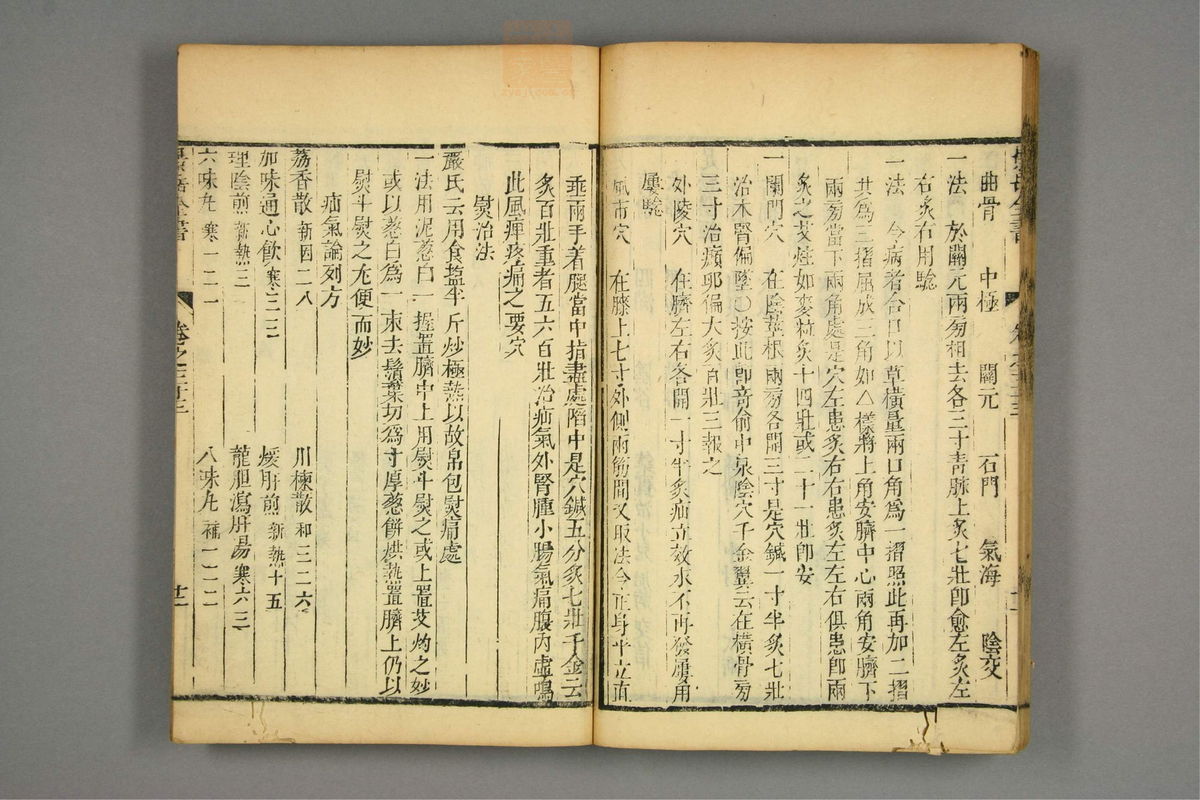 曲骨 中極 關元 石門 氣海 陰交
一法 於關元兩旁相去各三寸青脉上灸七壯卽愈左灸左
右灸右用騐
一法 令病者合口以草橫量兩口角爲一摺照此再加二摺
共爲三摺屈成三角如△樣將上角安臍中心兩角安臍下
兩旁當下兩角處是穴左患灸右右患灸左左右俱患卽兩
灸之艾炷如麥粒灸十四壯或二十一壯卽安
一闌門穴 在陰莖根兩旁各開三寸是穴鍼一寸半灸七壯
治木腎偏墜○按此卽竒俞中泉陰穴千金翼云在橫骨旁
三寸治㿗卵偏大灸百壯三報之
外陵穴 在臍左右各開一寸半灸疝立效永不再發屢用
屢騐
風市穴 在膝上七寸外側兩筋間又取法令正身平立直
垂兩手着腿當中指盡處陷中是穴鍼五分灸七壯千金云
灸百壯重者五六百壯治疝氣外腎腫小腸氣痛腹內虛鳴
此風痺疼痛之要穴
熨治法
嚴氏云用食塩半斤炒極熱以故帛包熨痛處
一法用泥葱白一握置臍中上用熨斗熨之或上置艾灼之妙
或以葱白爲一束去鬚葉切爲寸厚葱餅烘熱置臍上仍以
熨斗熨之尤便而妙
疝氣論列方
荔香散 新因二八 川楝散 和三二六
加味通心飲 寒三三 煖肝煎 新熱十五
理陰煎 新熱三 龍胆瀉肝湯 寒六三
六味丸 寒一二一 八味丸 補一二二
卷之三十三